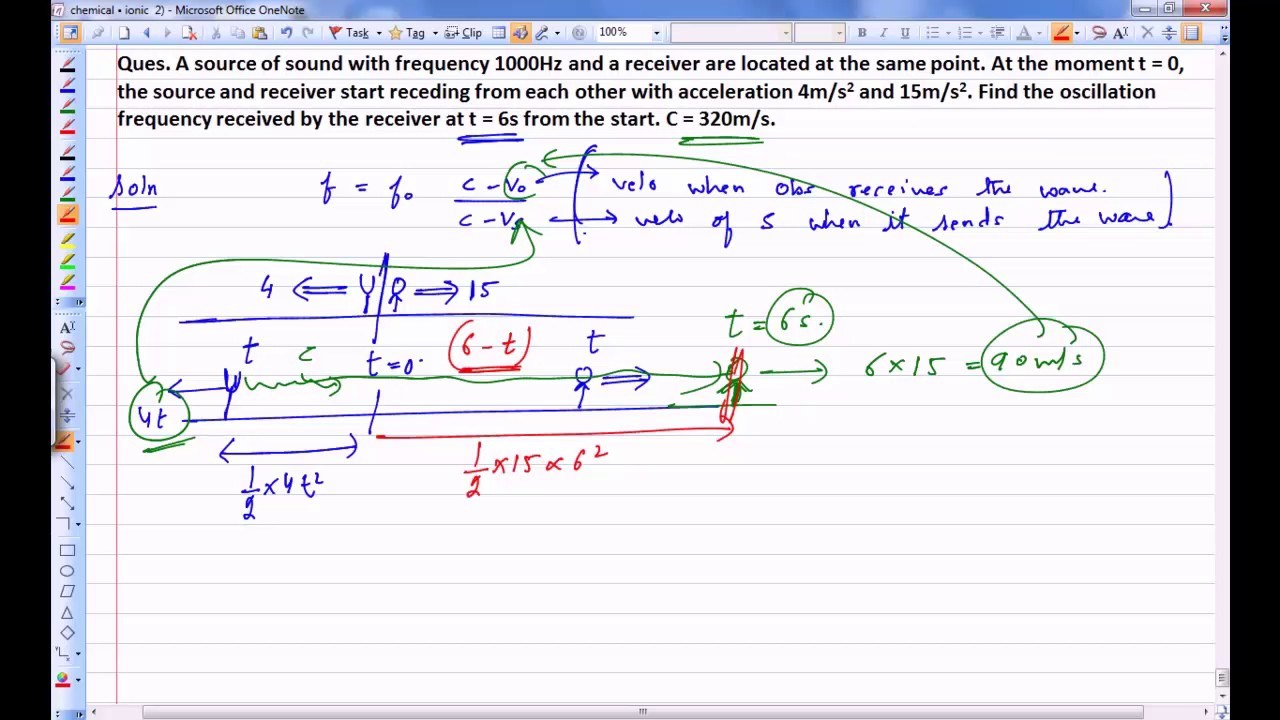 chemical • ionic 2) - Microsoft Office OneNote
Task Tag Clip 100% B I U
Ques. A source of sound with frequency 1000Hz and a receiver are located at the same point. At the moment t = 0,
the source and receiver start receding from each other with acceleration 4m/s² and 15m/s². Find the oscillation
frequency received by the receiver at t = 6s from the start. C = 320m/s.
Soln f = f₀ (c - v₀)/(c - vₛ)
velo when obs receives the wave.
velo of S when it sends the wave
4 15
t = 6s.
t c t = 0 6 - t t
6 × 15 = 90 m/s
4t
1/2 × 4t² 1/2 × 15 × 6²